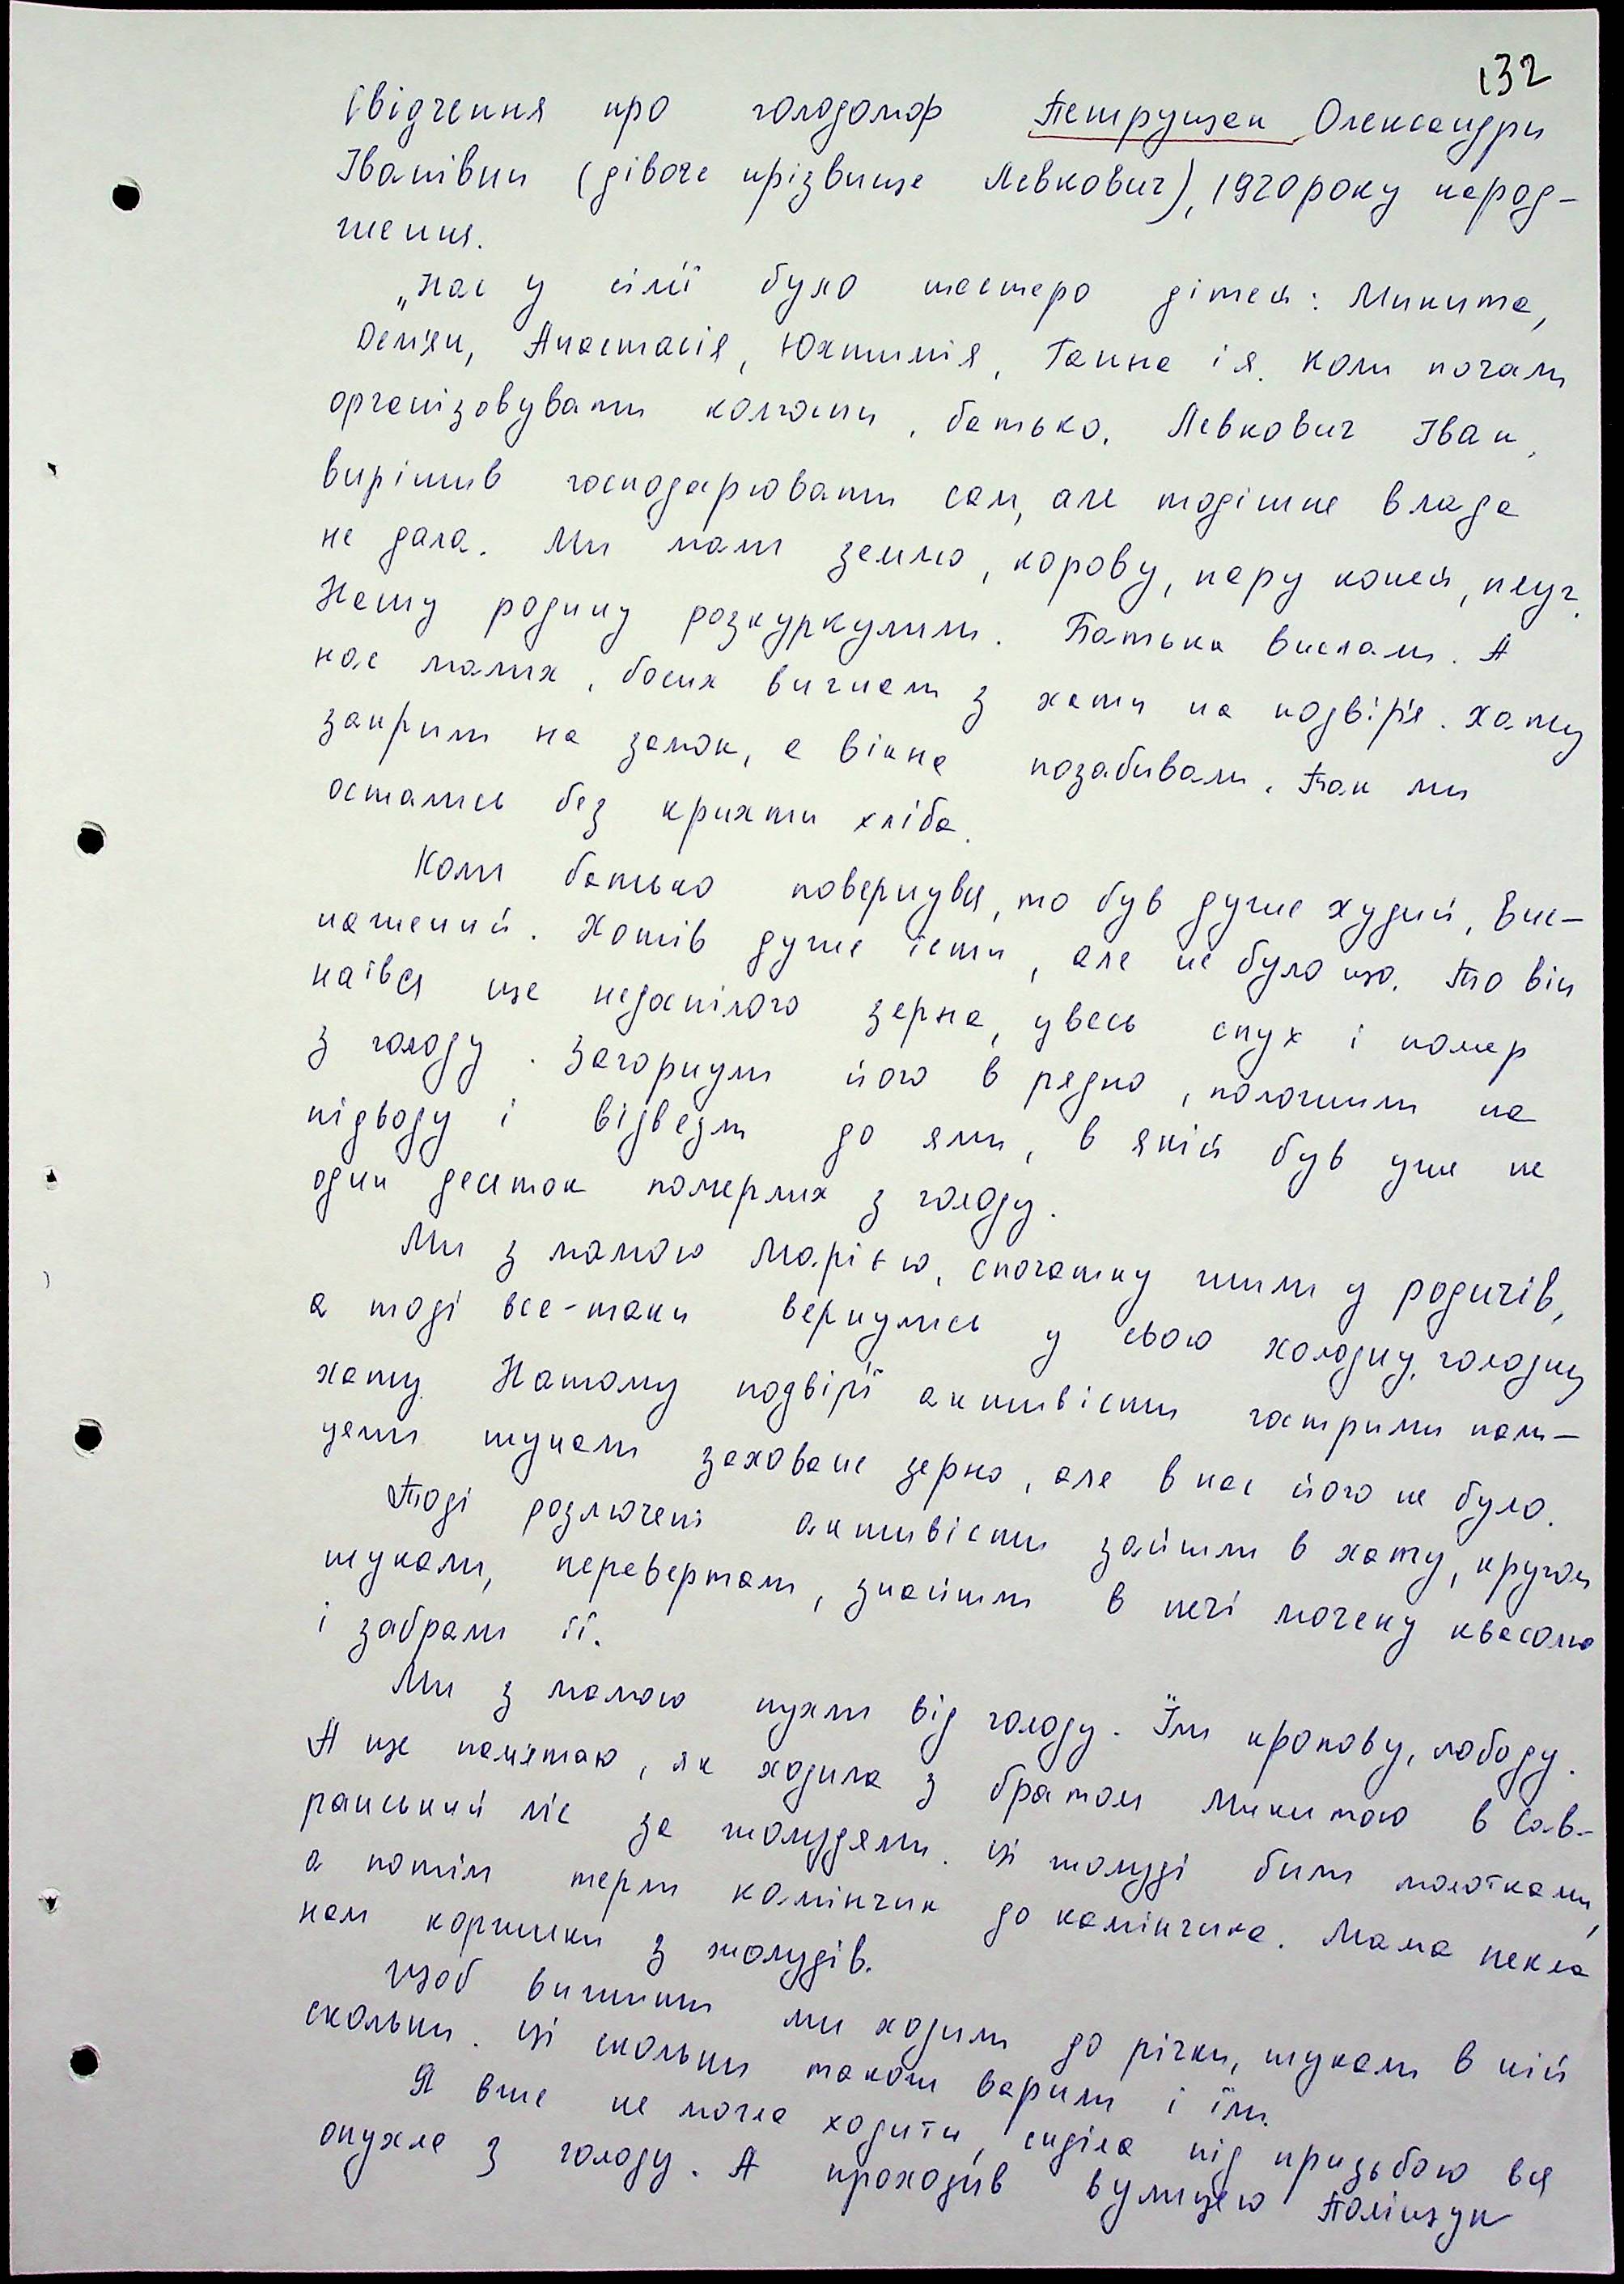 132
Свідчення про голодомор Петрущак Олександри
Іванівни (дівоче прізвище Левкович), 1920 року народ-
ження.
„Нас у сім'ї було шестеро дітей: Микита,
Дем'ян, Анастасія, Юхтимія, Ганна і я. Коли почали
організовувати колгоспи, батько, Левкович Іван,
вирішив господарювати сам, але тодішня влада
не дала. Ми мали землю, корову, пару коней, плуг.
Нашу родину розкуркулили. Батька вислали. А
нас малих, босих вигнали з хати на подвір'я. Хату
закрили на замок, а вікна позабивали. Так ми
остались без крихти хліба.
Коли батько повернувся, то був дуже худий, вис-
нажений. Хотів дуже їсти, але не було що. То він
наївся ще недоспілого зерна, увесь спух і помер
з голоду. Загорнули його в рядно, положили на
підводу і відвезли до ями, в якій був уже не
один десяток померлих з голоду.
Ми з мамою Марією, спочатку жили у родичів,
а тоді все-таки вернулись у свою холодну, голодну
хату. На тому подвір'ї активісти гострими пали-
цями шукали заховане зерно, але в нас його не було.
Тоді розлючені активісти зайшли в хату, кругом
шукали, перевертали, знайшли в печі мочену квасолю
і забрали її.
Ми з мамою пухли від голоду. Їли кропову, лободу.
А ще пам'ятаю, як ходила з братом Микитою в Сав-
ранський ліс за жолудями. Ці жолуді били молотками,
а потім терли камінчик до камінчика. Мама пекла
нам коржики з жолудів.
Щоб вижити ми ходили до річки, шукали в ній
скольки. Ці скольки також варили і їли.
Я вже не могла ходити, сиділа під призьбою вся
опухла з голоду. А проходив вулицею Поліщук